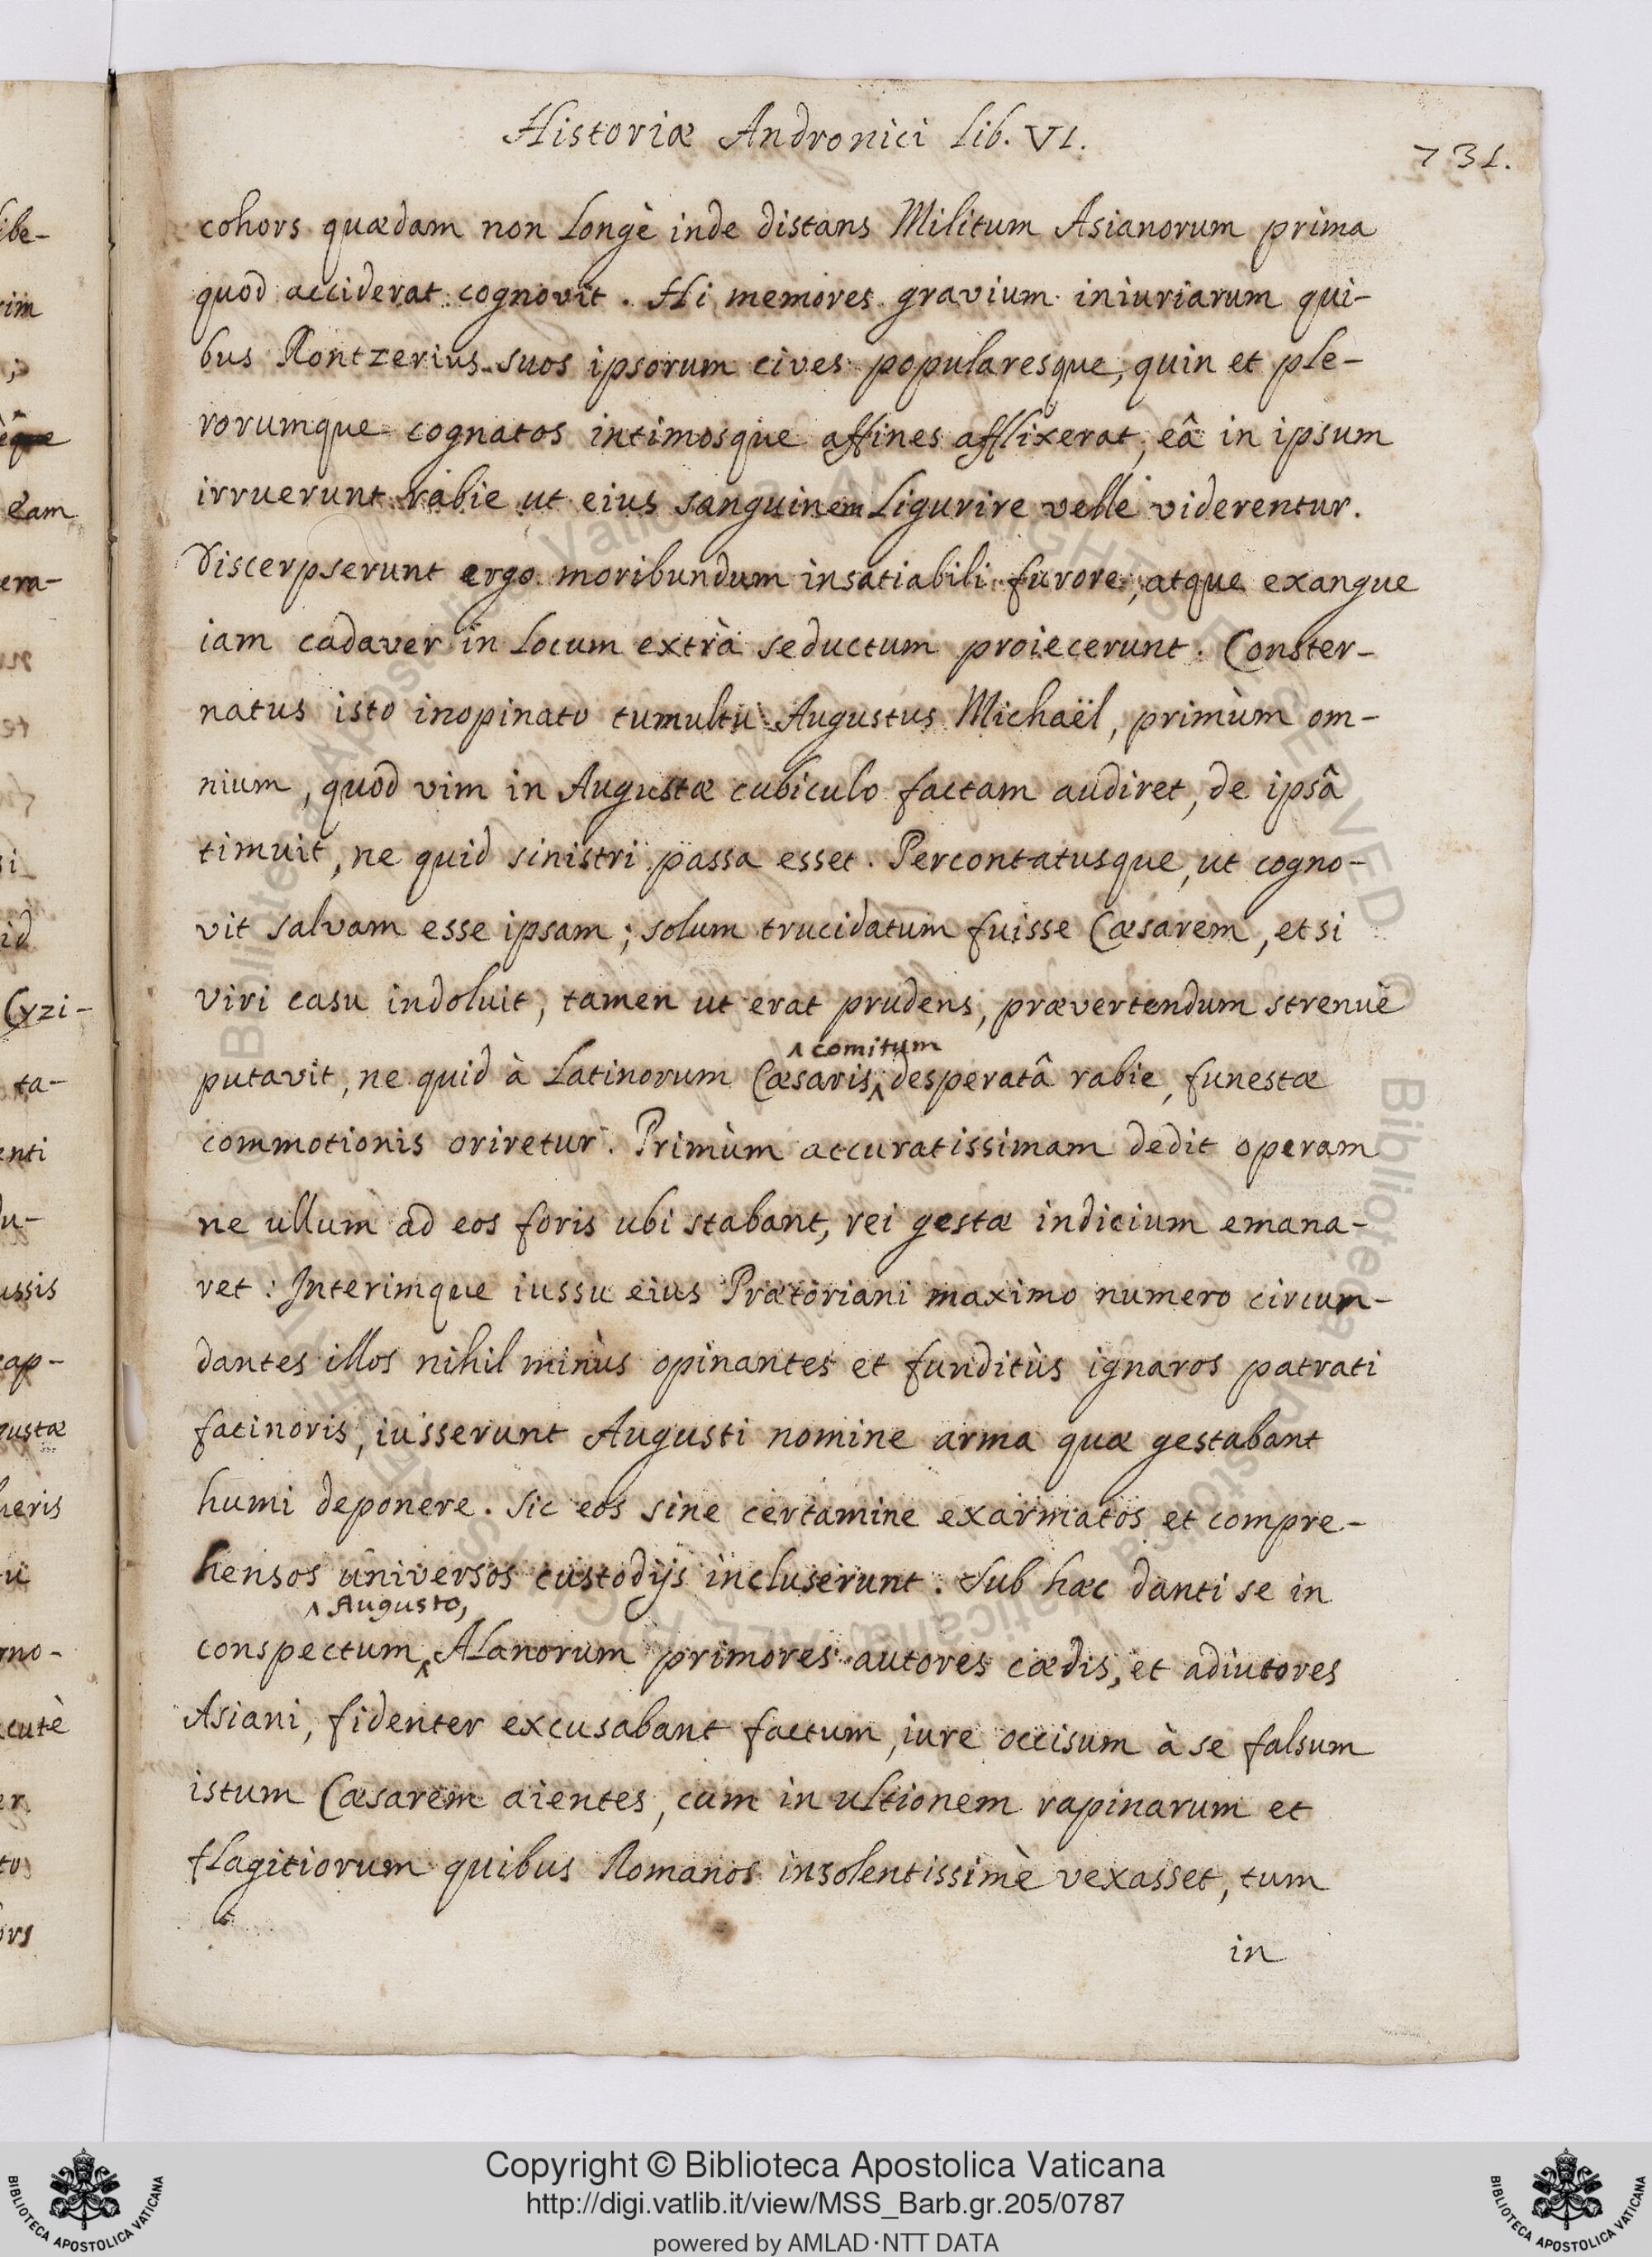 Historiæ Andronici lib. VI.
731.
cohors quædam non longè inde distans Militum Asianorum prima
quod acciderat cognovit. Hi memores gravium iniuriarum qui-
bus Rontzerius suos ipsorum cives popularesque, quin et ple-
rorumque cognatos intimosque affines afflixerat, eâ in ipsum
irruerunt rabie ut eius sanguinem ligurire velle viderentur.
Discerpserunt ergo moribundum insatiabili furore, atque exangue
iam cadaver in locum extrà seductum proiecerunt. Conster-
natus isto inopinato tumultu Augustus Michaël, primùm om-
nium, quod vim in Augustæ cubiculo factam audiret, de ipsâ
timuit, ne quid sinistri passa esset. Percontatusque, ut cogno-
vit salvam esse ipsam; solum trucidatum fuisse Cæsarem, etsi
viri casu indoluit, tamen ut erat prudens, prævertendum strenuè
^ comitum
putavit, ne quid à Latinorum Cæsaris ^ desperatâ rabie, funestæ
commotionis oriretur. Primùm accuratissimam dedit operam
ne ullum ad eos foris ubi stabant, rei gestæ indicium emana-
ret: Interimque iussu eius Prætoriani maximo numero circun-
dantes illos nihil minùs opinantes et funditùs ignaros patrati
facinoris, iusserunt Augusti nomine arma quæ gestabant
humi deponere. Sic eos sine certamine exarmatos et compre-
hensos universos custodijs incluserunt. Sub hæc danti se in
^ Augusto,
conspectum ^ Alanorum primores autores cædis, et adiutores
Asiani, fidenter excusabant factum, iure occisum à se falsum
istum Cæsarem aientes, cum in ultionem rapinarum et
flagitiorum quibus Romanos insolentissimè vexasset, tum
in
ibe-
rim
eam
era-
si
id
Cyzi-
ta-
enti
du-
ussis
cap-
gustæ
heris
mo-
cutè
er
to
ors
Copyright © Biblioteca Apostolica Vaticana
http://digi.vatlib.it/view/MSS_Barb.gr.205/0787
powered by AMLAD·NTT DATA
BIBLIOTECA APOSTOLICA VATICANA
BIBLIOTECA APOSTOLICA VATICANA